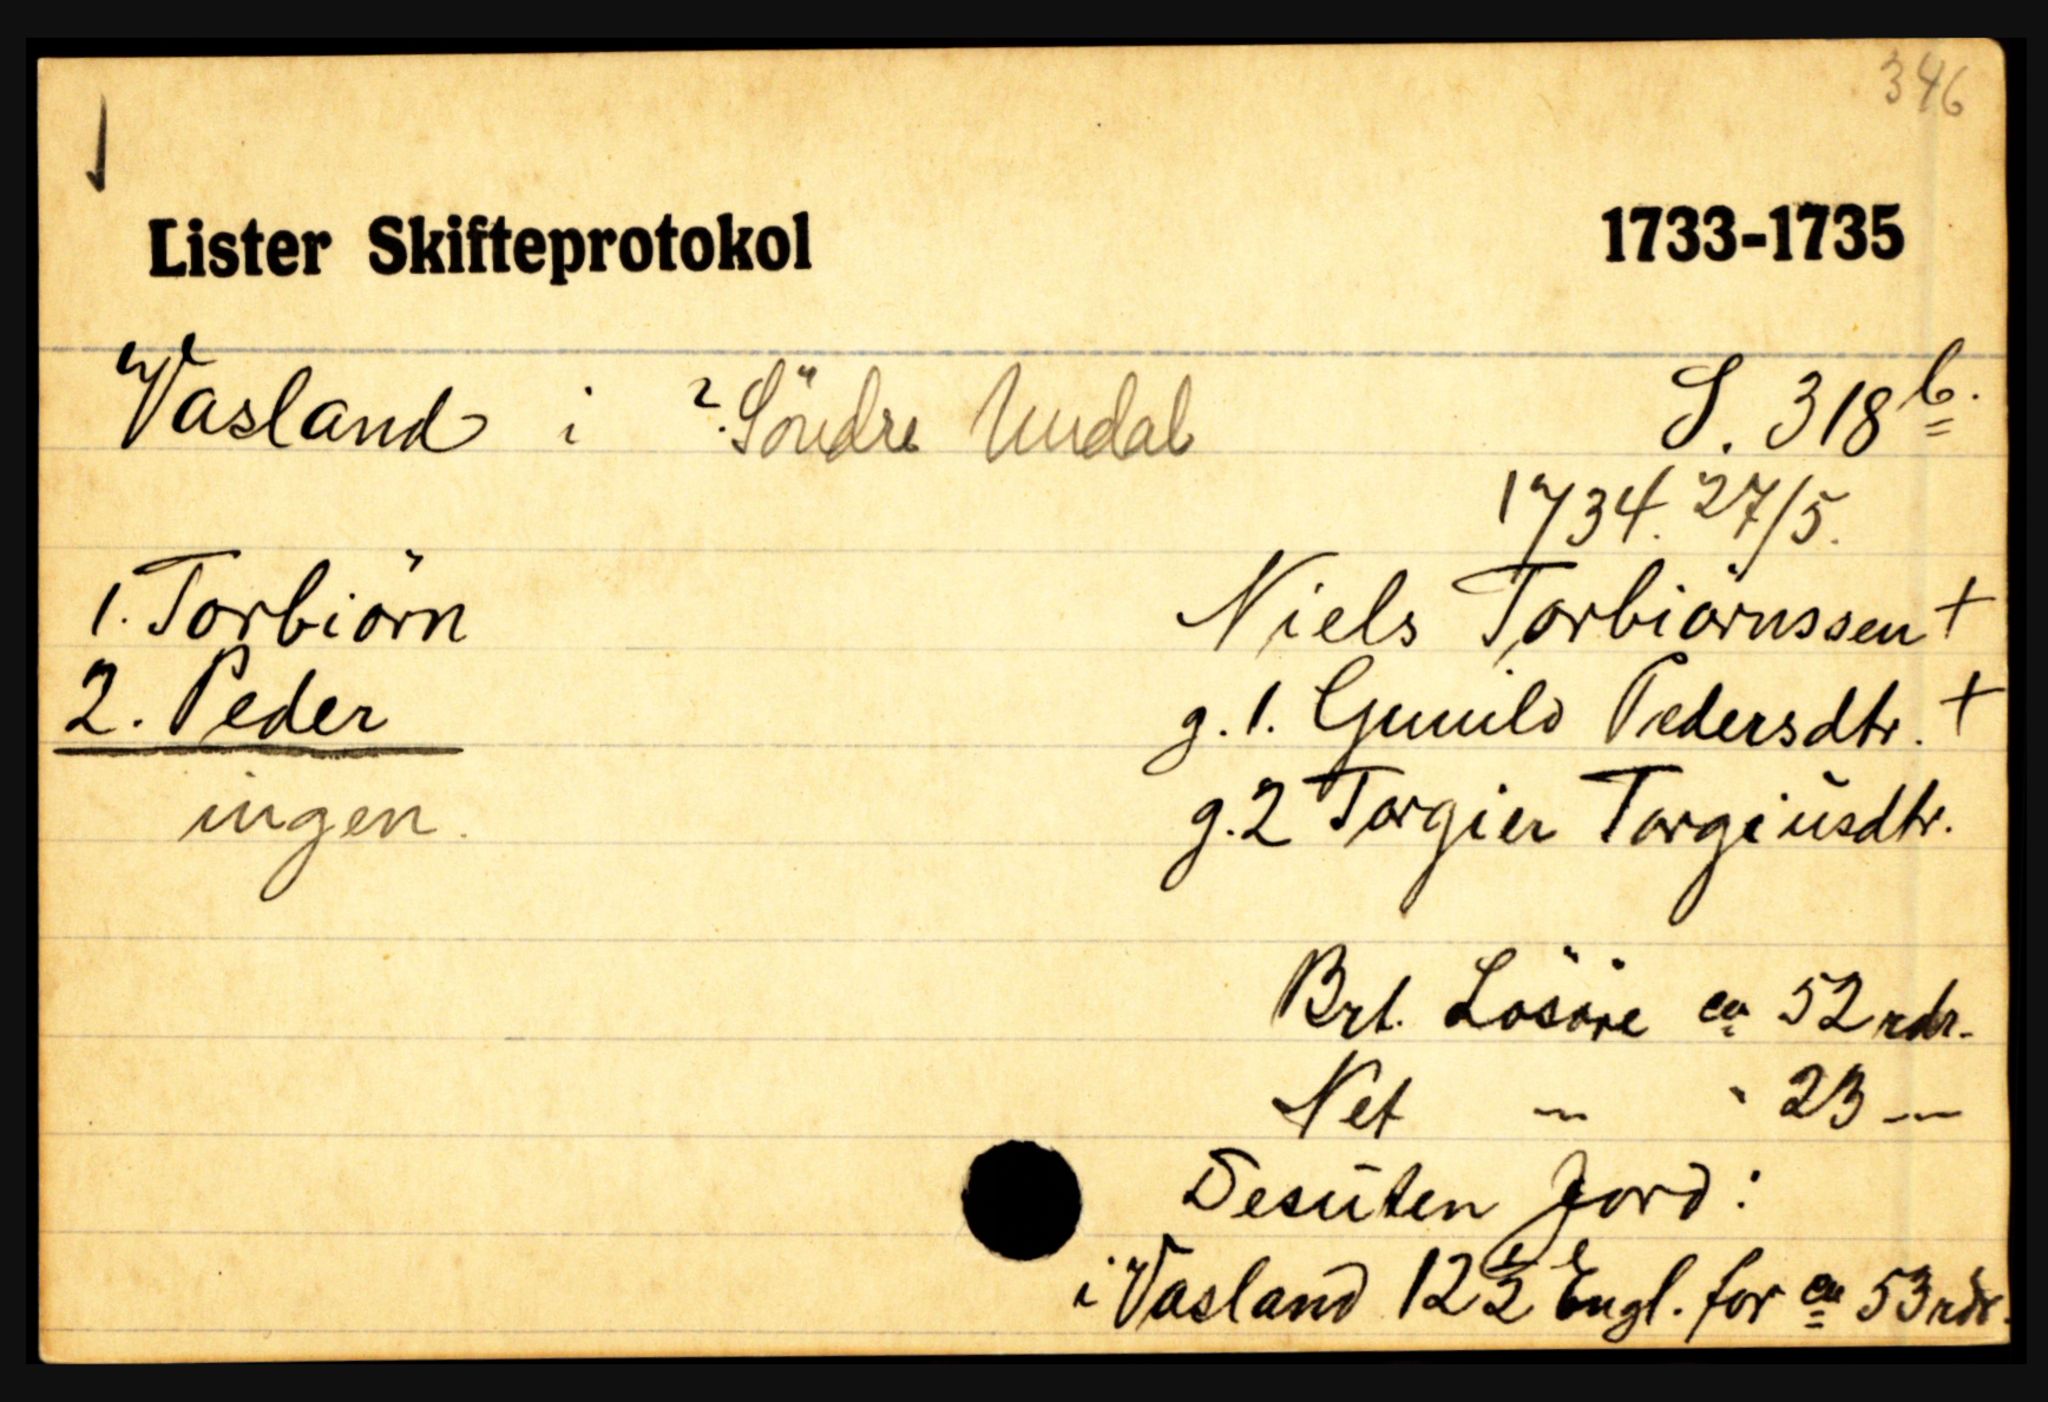 346
Lister Skifteprotokol 1733-1735
Vasland i ?. Söndre Undal S. 318 b.
1734. 27/5.
1. Torbiörn Niels Torbiörnssen +
2. Peder g. 1. Gunild Pedersdtr. +
ingen. g. 2 Torgier Torgiusdtr.
Brt. Lösöre ca 52 rdr.
Net — " 23 —
Desuten Jord:
i Vasland 12 1/2 Engl. for ca 53 rdr.